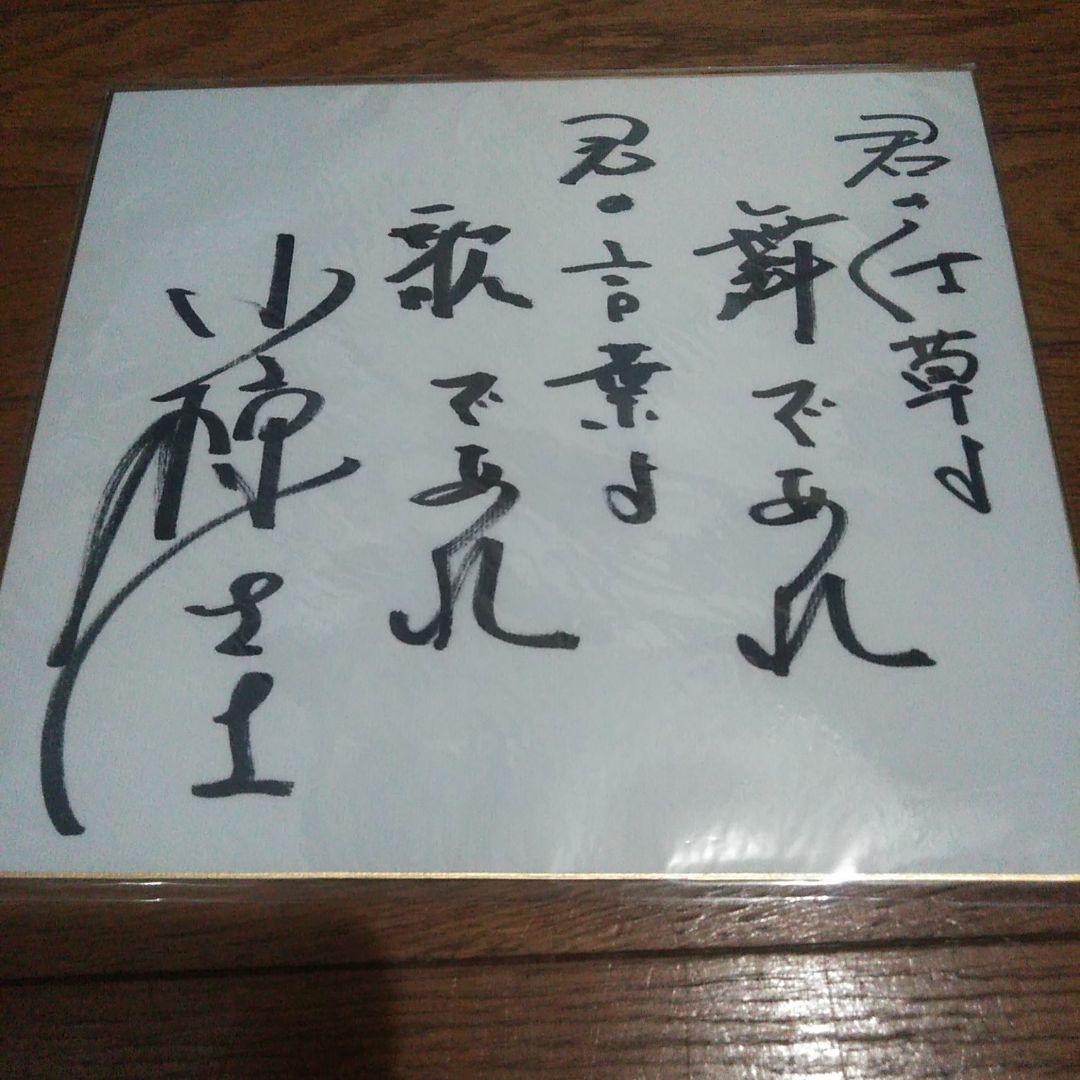 君の仕草よ
舞であれ
君の言葉よ
歌であれ
小椋佳